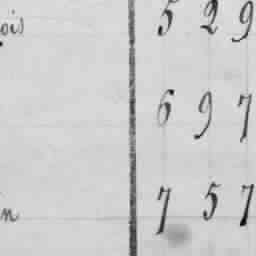 ois 529
697
n 757